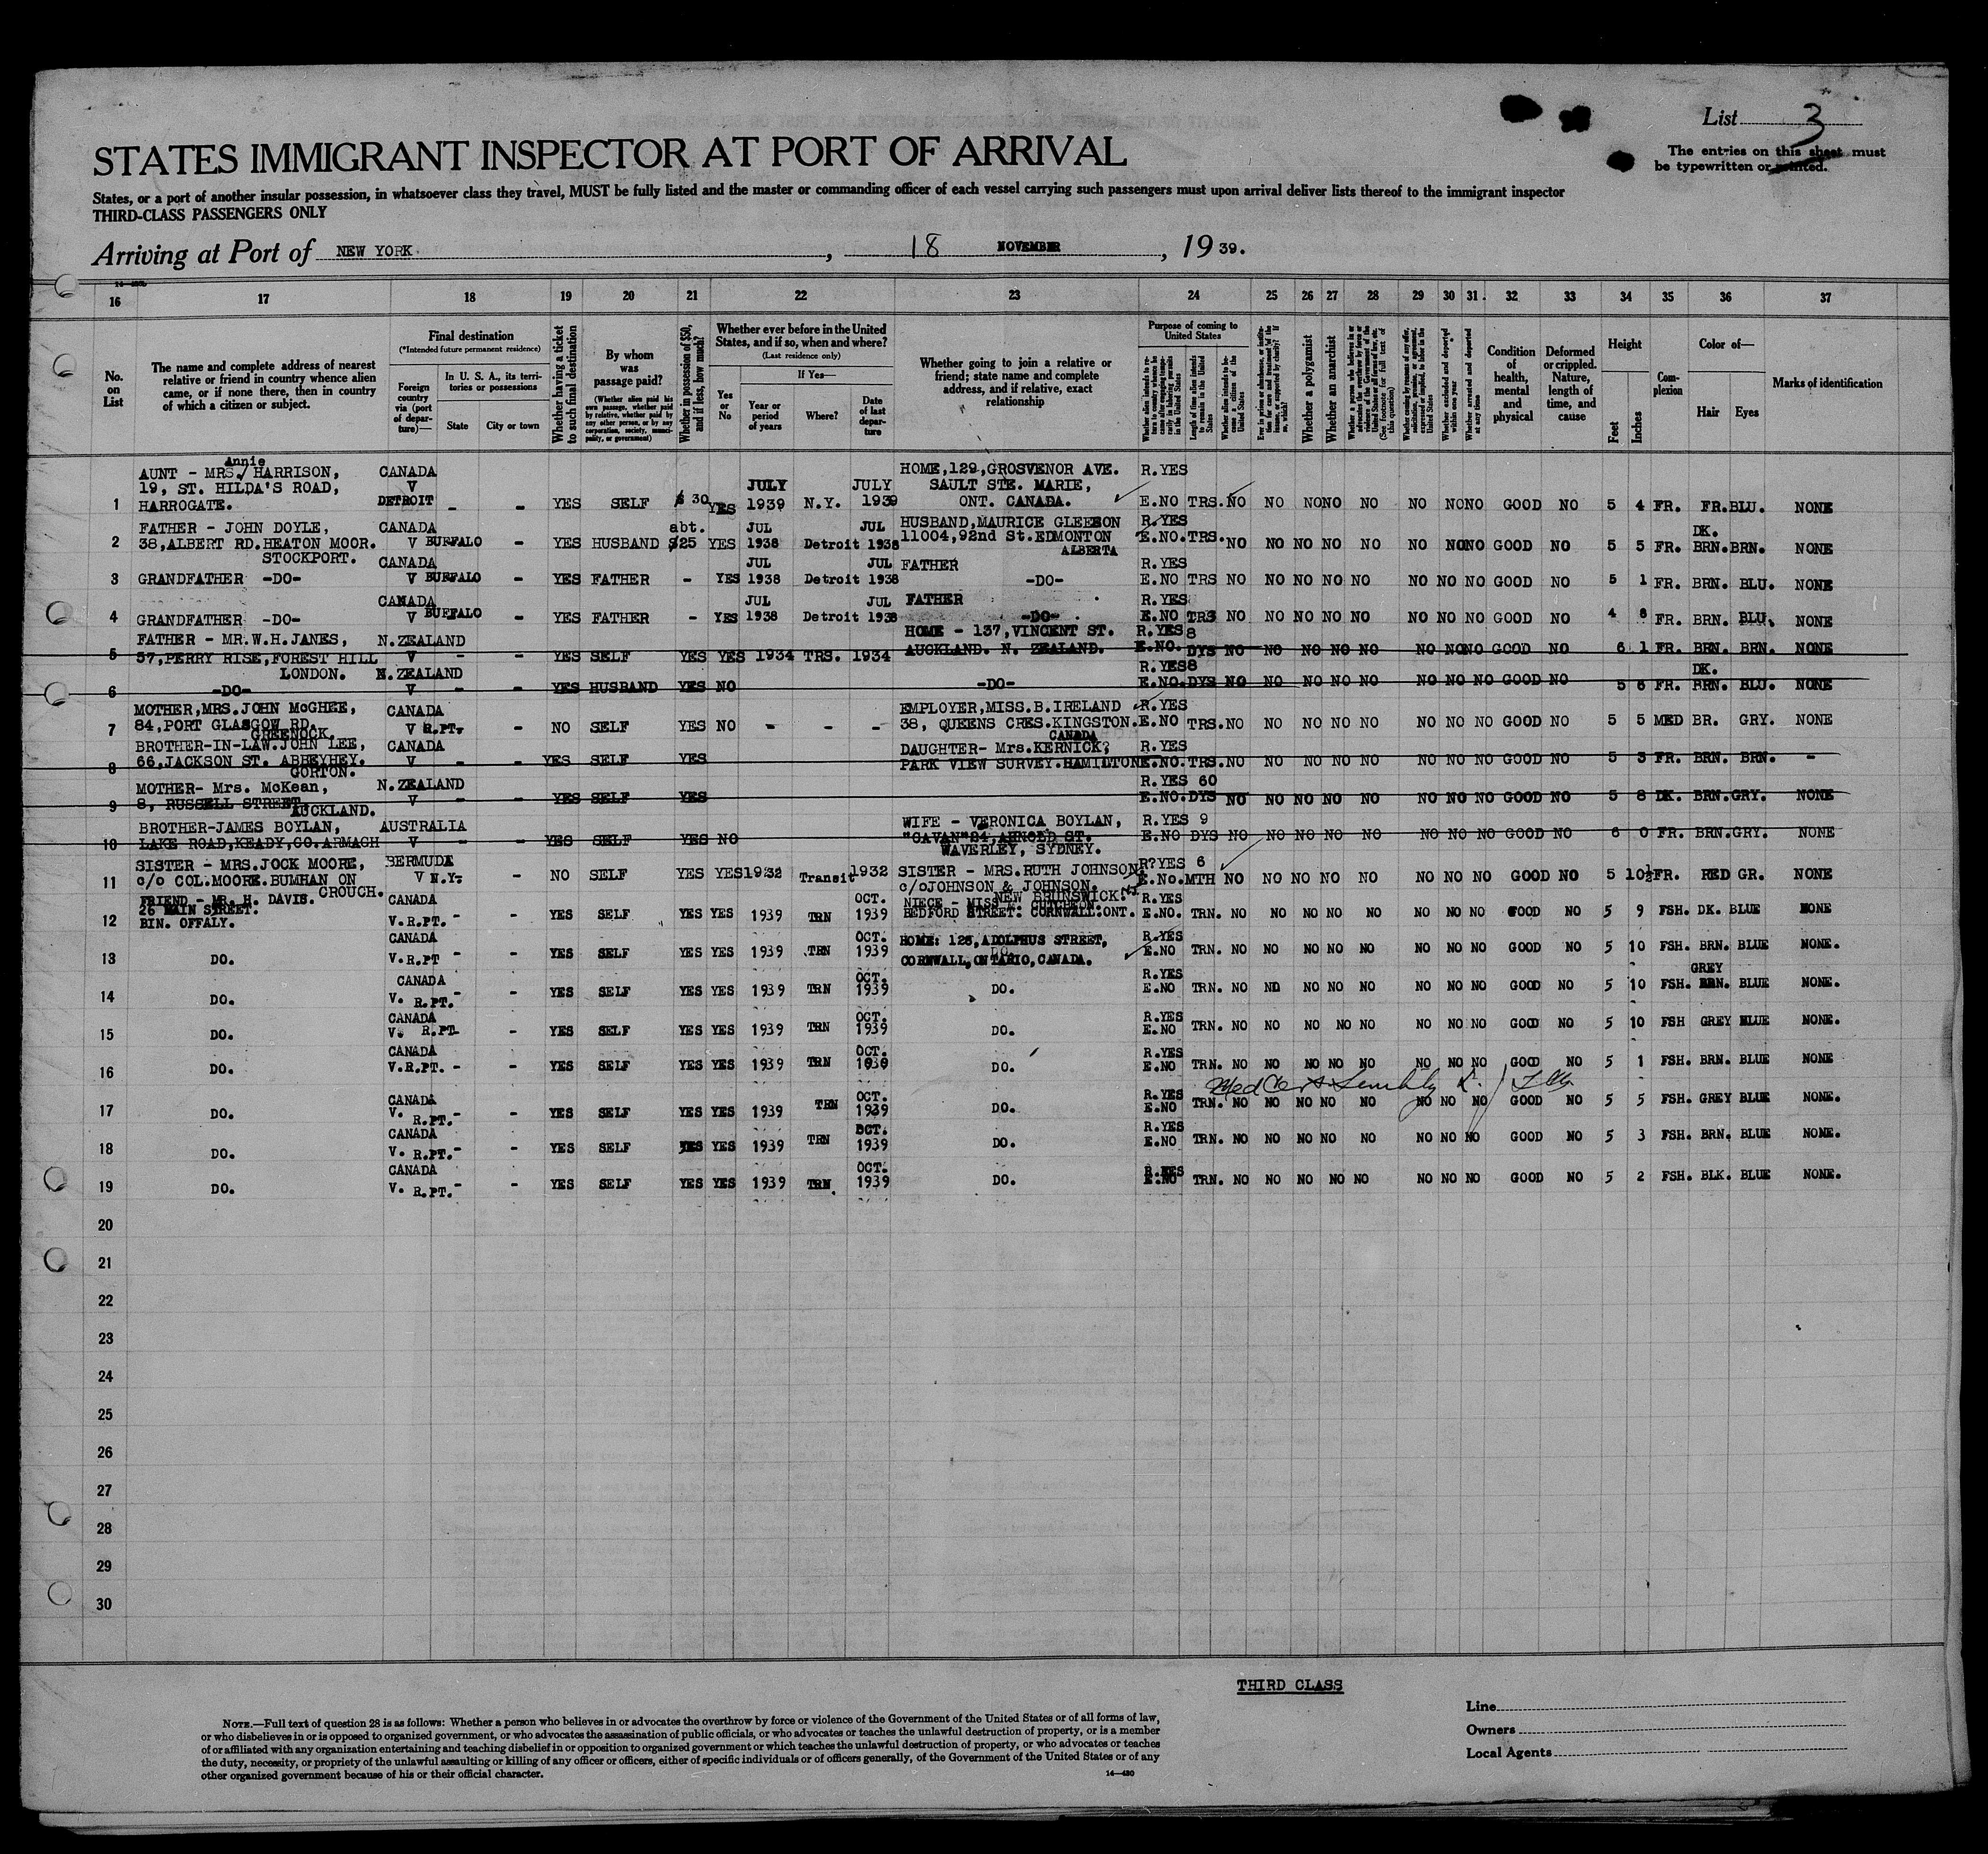 List 3
The entries on this sheet must
be typewritten or printed.
STATES IMMIGRANT INSPECTOR AT PORT OF ARRIVAL
States, or a part of another insular possession, in whatsoever class they travel, MUST be fully listed and the master or commanding officer of each vessel carrying such passengers must upon arrival deliver lists thereof to the immigrant inspector
THIRD-CLASS PASSENGERS ONLY
Arriving at Port of NEW YORK, 18 NOVEMBER, 1939.
16 17 18 19 20 21 22 23 24 25 26 27 28 29 30 31 32 33 34 35 36 37
No. on List
The name and complete address of nearest relative or friend in country whence alien came, or if none there, then in country of which a citizen or subject.
Final destination
(*Intended future permanent residence)
Foreign country via (port of departure)—
In U. S. A., its territories or possessions
State City or town
Whether having a ticket to such final destination
By whom was passage paid?
(Whether alien paid his own passage, whether paid by relative, whether paid by any other person, or by any corporation, society, municipality, or government)
Whether in possession of $50, and if less, how much?
Whether ever before in the United States, and if so, when and where?
(Last residence only)
Yes or No
If Yes—
Year or period of years
Where?
Date of last departure
Whether going to join a relative or friend; state name and complete address, and if relative, exact relationship
Purpose of coming to United States
Length of time alien intends to remain in the United States
Whether alien intends to become a citizen of the United States
Whether a polygamist
Whether an anarchist
Condition of health, mental and physical
Deformed or crippled. Nature, length of time, and cause
Height
Feet Inches
Complexion
Color of—
Hair Eyes
Marks of identification
1 AUNT - MRS. Annie HARRISON, 19, ST. HILDA'S ROAD, HARROGATE. CANADA V DETROIT - - YES SELF $ 30 YES JULY 1939 N.Y. JULY 1939 HOME,129,GROSVENOR AVE. SAULT STE. MARIE, ONT. CANADA. R.YES E.NO TRS. NO NO NO NO NO NO NO NO GOOD NO 5 4 FR. FR. BLU. NONE
2 FATHER - JOHN DOYLE, 38,ALBERT RD.HEATON MOOR. STOCKPORT. CANADA V BUFFALO - YES HUSBAND abt. $25 YES JUL 1938 Detroit JUL 1938 HUSBAND,MAURICE GLEESON 11004,92nd St.EDMONTON ALBERTA R.YES E.NO. TRS. NO NO NO NO NO NO NO NO GOOD NO 5 5 FR. DK. BRN. BRN. NONE
3 GRANDFATHER -DO- CANADA V BUFFALO - YES FATHER - YES JUL 1938 Detroit JUL 1938 FATHER -DO- R.YES E.NO TRS NO NO NO NO NO NO NO NO GOOD NO 5 1 FR. BRN. BLU. NONE
4 GRANDFATHER -DO- CANADA V BUFFALO - YES FATHER - YES JUL 1938 Detroit JUL 1938 FATHER -DO- R.YES E.NO TRS NO NO NO NO NO NO NO NO GOOD NO 4 8 FR. BRN. BLU. NONE
5 FATHER - MR.W.H.JANES, 57,PERRY RISE,FOREST HILL LONDON. N.ZEALAND V - - YES SELF YES YES 1934 TRS. 1934 HOME - 137,VINCENT ST. AUCKLAND. N. ZEALAND. R.YES E.NO. 8 DYS NO NO NO NO NO NO NO NO GOOD NO 6 1 FR. BRN. BRN. NONE
6 -DO- N.ZEALAND V - - YES HUSBAND YES NO -DO- R.YES E.NO. 8 DYS NO NO NO NO NO NO NO NO GOOD NO 5 6 FR. DK. BRN. BLU. NONE
7 MOTHER,MRS.JOHN McGHEE, 84,PORT GLASGOW RD. GREENOCK. CANADA V R.PT. - NO SELF YES NO - - - EMPLOYER,MISS.B.IRELAND 38, QUEENS CRES.KINGSTON. CANADA R.YES E.NO TRS. NO NO NO NO NO NO NO NO GOOD NO 5 5 MED BR. GRY. NONE
8 BROTHER-IN-LAW.JOHN LEE, 66,JACKSON ST. ABBEYHEY. GORTON. CANADA V - - YES SELF YES DAUGHTER- Mrs.KERNICK, PARK VIEW SURVEY.HAMILTON R.YES E.NO. TRS. NO NO NO NO NO NO NO NO GOOD NO 5 3 FR. BRN. BRN. -
9 MOTHER- Mrs. McKean, 8, RUSSELL STREET, AUCKLAND. N.ZEALAND V - - YES SELF YES R.YES E.NO. 60 DYS NO NO NO NO NO NO NO NO GOOD NO 5 8 DK. BRN. GRY. NONE
10 BROTHER-JAMES BOYLAN, LAKE ROAD,KEADY,CO.ARMAGH AUSTRALIA V - - YES SELF YES NO WIFE - VERONICA BOYLAN, "CAVAN"84,ARNOLD ST. WAVERLEY, SYDNEY. R.YES E.NO 9 DYS NO NO NO NO NO NO NO NO GOOD NO 6 0 FR. BRN. GRY. NONE
11 SISTER - MRS.JOCK MOORE, c/o COL.MOORE.BUMHAN ON CROUCH. BERMUDA V N.Y. - NO SELF YES YES 1932 Transit 1932 SISTER - MRS.RUTH JOHNSON. c/o JOHNSON & JOHNSON. NEW BRUNSWICK. NJ R?YES E.No. 6 MTH NO NO NO NO NO NO NO NO GOOD NO 5 10½ FR. RED GR. NONE
12 FRIEND - MR. H. DAVIS. 26 MAIN STREET. BIN. OFFALY. CANADA V.R.PT. - - YES SELF YES YES 1939 TRN OCT. 1939 NIECE - MISS E. CUTCHEON. BEDFORD STREET: CORNWALL:ONT. R.YES E.NO. TRN. NO NO NO NO NO NO NO NO GOOD NO 5 9 FSH. DK. BLUE NONE
13 DO. CANADA V.R.PT - - YES SELF YES YES 1939 TRN OCT. 1939 HOME: 125,ADOLPHUS STREET, CORNWALL,ONTARIO,CANADA. R.YES E.NO TRN. NO NO NO NO NO NO NO NO GOOD NO 5 10 FSH. BRN. BLUE NONE.
14 DO. CANADA V. R.PT. - - YES SELF YES YES 1939 TRN OCT. 1939 DO. R.YES E.NO TRN. NO NO NO NO NO NO NO NO GOOD NO 5 10 FSH. GREY BRN. BLUE NONE.
15 DO. CANADA V. R.PT. - YES SELF YES YES 1939 TRN OCT. 1939 DO. R.YES E.NO TRN. NO NO NO NO NO NO NO NO GOOD NO 5 10 FSH GREY BLUE NONE.
16 DO. CANADA V.R.PT. - - YES SELF YES YES 1939 TRN OCT. 1939 DO. R.YES E.NO TRN. NO NO NO NO NO NO NO NO GOOD NO 5 1 FSH. BRN. BLUE NONE
Med Cert
17 DO. CANADA V. R.PT. - - YES SELF YES YES 1939 TRN OCT. 1939 DO. R.YES E.NO TRN. NO NO NO NO NO NO NO NO GOOD NO 5 5 FSH. GREY BLUE NONE.
18 DO. CANADA V. R.PT. - - YES SELF YES YES 1939 TRN OCT. 1939 DO. R.YES E.NO TRN. NO NO NO NO NO NO NO NO GOOD NO 5 3 FSH. BRN. BLUE NONE.
19 DO. CANADA V. R.PT. - - YES SELF YES YES 1939 TRN OCT. 1939 DO. R.YES E.NO TRN. NO NO NO NO NO NO NO NO GOOD NO 5 2 FSH. BLK. BLUE NONE.
20
21
22
23
24
25
26
27
28
29
30
THIRD CLASS
Line
Owners
Local Agents
NOTE.—Full text of question 28 is as follows: Whether a person who believes in or advocates the overthrow by force or violence of the Government of the United States or of all forms of law,
or who disbelieves in or is opposed to organized government, or who advocates the assassination of public officials, or who advocates or teaches the unlawful destruction of property, or is a member
of or affiliated with any organization entertaining and teaching disbelief in or opposition to organized government or which teaches the unlawful destruction of property, or who advocates or teaches
the duty, necessity, or propriety of the unlawful assaulting or killing of any officer or officers, either of specific individuals or of officers generally, of the Government of the United States or of any
other organized government because of his or their official character.
14—430